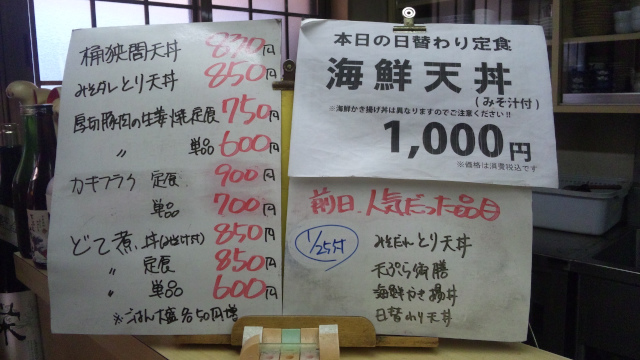 桶狭間天丼 890円
みそダレとり天丼 850円
厚切豚肉の生姜焼定食 750円
〃 単品 600円
カキフライ 定食 900円
単品 700円
どて煮、丼(みそ汁付) 850円
〃 定食 850円
〃 単品 600円
※ごはん大盛各50円増
本日の日替わり定食
海鮮天丼
(みそ汁付)
※海鮮かき揚げ丼は異なりますのでご注意ください!!
1,000円
※価格は消費税込です
前日、人気だった品目
1/25付
みそだれとり天丼
天ぷら御膳
海鮮かき揚丼
日替わり天丼